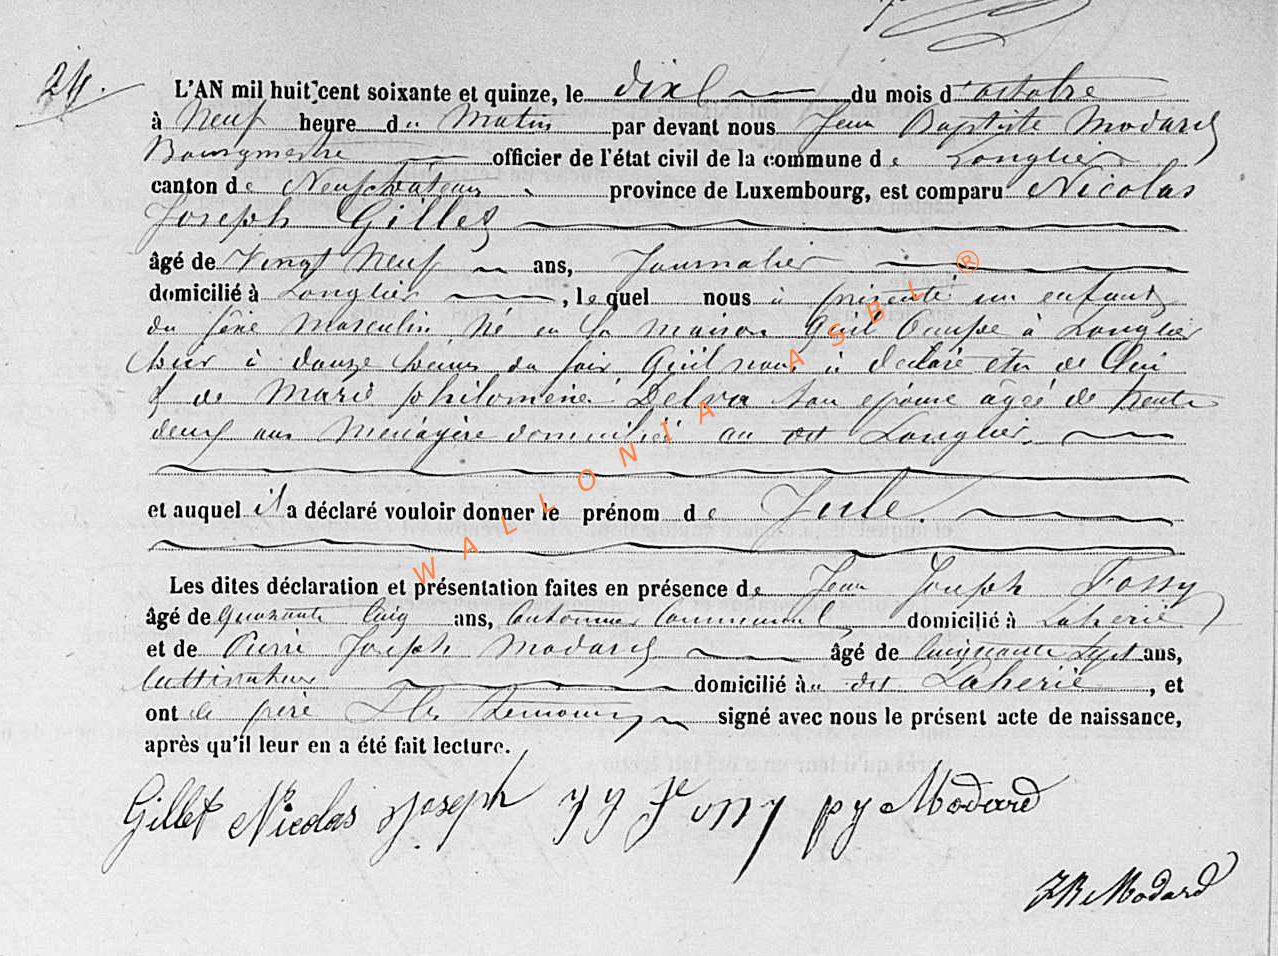 24.
L'AN mil huit cent soixante et quinze, le dix du mois d'octobre
à Neuf heure du Matin par devant nous Jean Baptiste Modard
Bourgmestre officier de l'état civil de la commune de Longlier
canton de Neufchâteau province de Luxembourg, est comparu Nicolas
Joseph Gillet
âgé de Vingt Neuf ans, Journalier
domicilié à Longlier, lequel nous à présenté un enfant
du séxe Masculin Né en la maison Quil Occupe à Longlier
hier à douze heures du soir, Quil nous à déclaré etre de Lui
& de Marie philomène Delva son épouse âgée de trente
deux ans Menagère domiciliée au dit Longlier.
et auquel il a déclaré vouloir donner le prénom de Jule.
Les dites déclaration et présentation faites en présence de Jean Joseph Fossy
âgé de Quarante Cinq ans, Cantonnier Communal domicilié à Laherie
et de Pierre Joseph Modard âgé de Cinquante Sept ans,
Cultivateur domicilié à au dit Laherie, et
ont le père & les temoins signé avec nous le présent acte de naissance,
après qu'il leur en a été fait lecture.
Gillet Nicolas Joseph J J Fossy p J Modard
J B Modard
WALLONIA ASBL ®